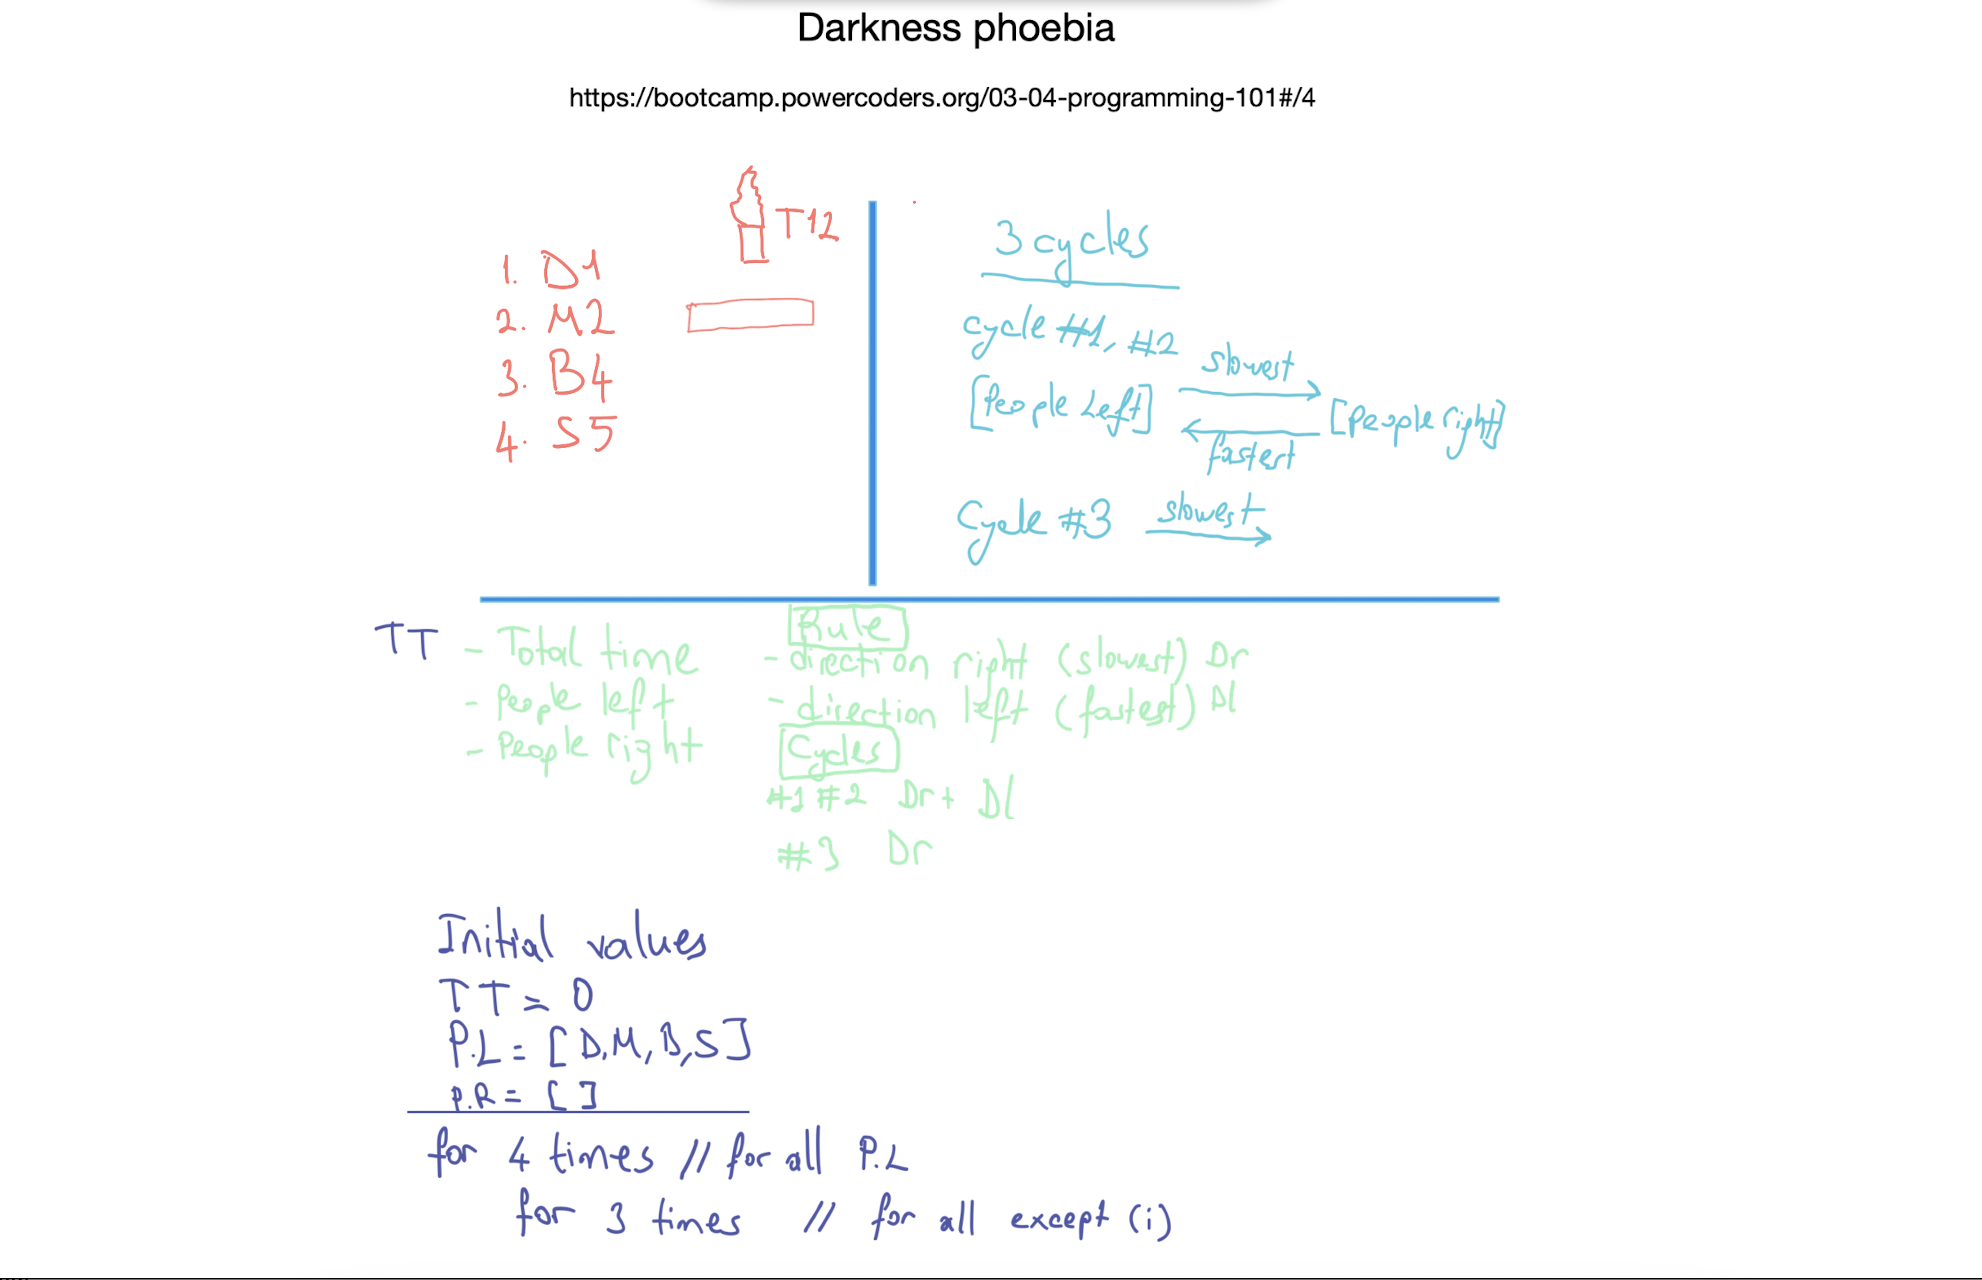 Darkness phoebia
https://bootcamp.powercoders.org/03-04-programming-101#/4
T12
1. D1
2. M2
3. B4
4. S5
3 cycles
cycle #1, #2
slowest
[People Left]
[People right]
fastest
Cycle #3 slowest
TT - Total time
- People left
- People right
Rule
- direction right (slowest) Dr
- direction left (fastest) Dl
Cycles
#1 #2 Dr + Dl
#3 Dr
Initial values
TT = 0
P.L = [D,M,B,S]
P.R = []
for 4 times // for all P.L
for 3 times // for all except (i)